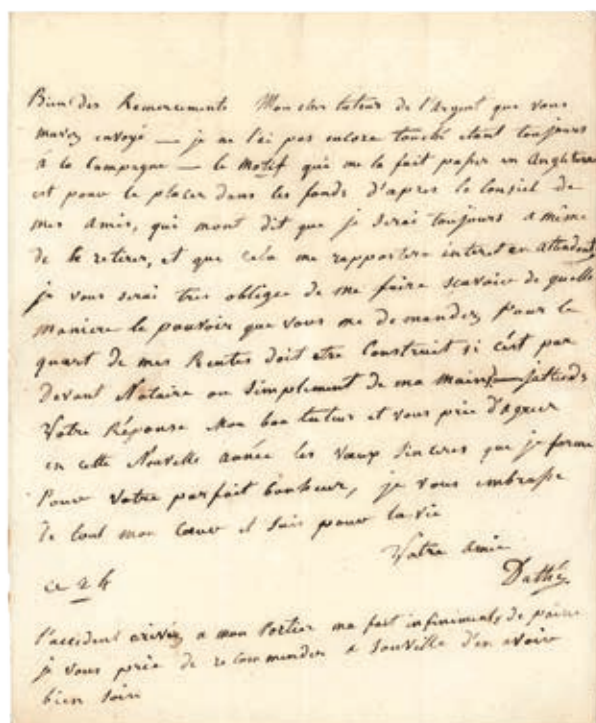 Bien des Remerciements Mon cher tuteur de l'Argent que vous
mavez envoyé — je ne l'ai pas encore touché etant toujours
à la Campagne — le Motif qui me la fait passer en Angleterre
est pour le placer dans les fonds d'apres le Conseil de
mes Amis, qui mont dit que je serai toujours a même
de le retirer, et que cela me rapportera interet en attendant
je vous serai tres obligée de me faire scavoir de quelle
maniere le pouvoir que vous me demandez Pour le
quart de mes Rentes doit etre Construit si c'est par
devant Notaire ou Simplement de ma main — jattends
Votre Réponse Mon bon tuteur et vous prie d'agreer
en cette Nouvelle année les vœux Sinceres que je forme
Pour Votre parfait bonheur, je vous embrasse
de tout mon Cœur et suis pour la vie
Votre amie
Duthé
ce 24
l'accident arivéz a mon Portier ma fait infiniment de peine
je vous prie de recommender a Souville d'en avoir
bien soin